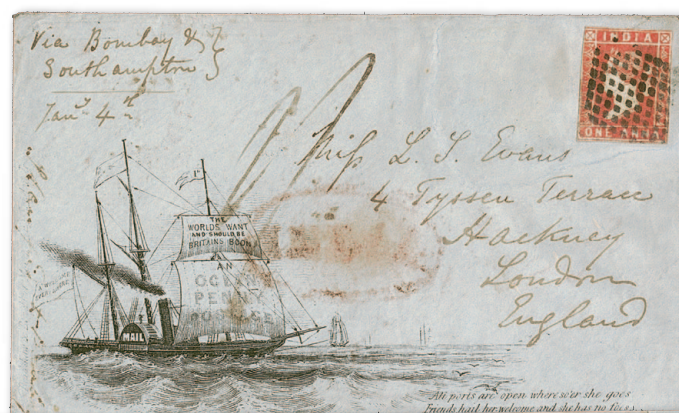 Via Bombay &
Southampton
Jany 4th
INDIA
ONE ANNA
Miss L. S. Evans
4 Tyssen Terrace
Hackney
London
England
THE
WORLDS WANT
AND SHOULD BE
BRITAINS BOON
AN
OCEAN
PENNY
POSTAGE
MAIL
All ports are open wheresoe'er she goes
Friends hail her welcome and she has no foes